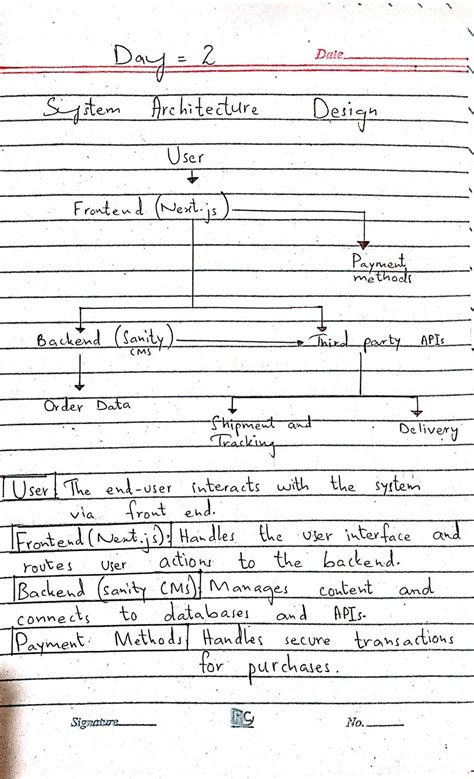 Day = 2
Date
System Architecture Design
User
Frontend (Next.js)
Payment
methods
Backend (Sanity)
CMS
Third party APIs
Order Data
Shipment and
Tracking
Delivery
User: The end-user interacts with the system
via front end.
Frontend (Next.js): Handles the user interface and
routes user actions to the backend.
Backend (sanity CMS): Manages content and
connects to databases and APIs.
Payment Methods Handles secure transactions
for purchases.
Signature
No.